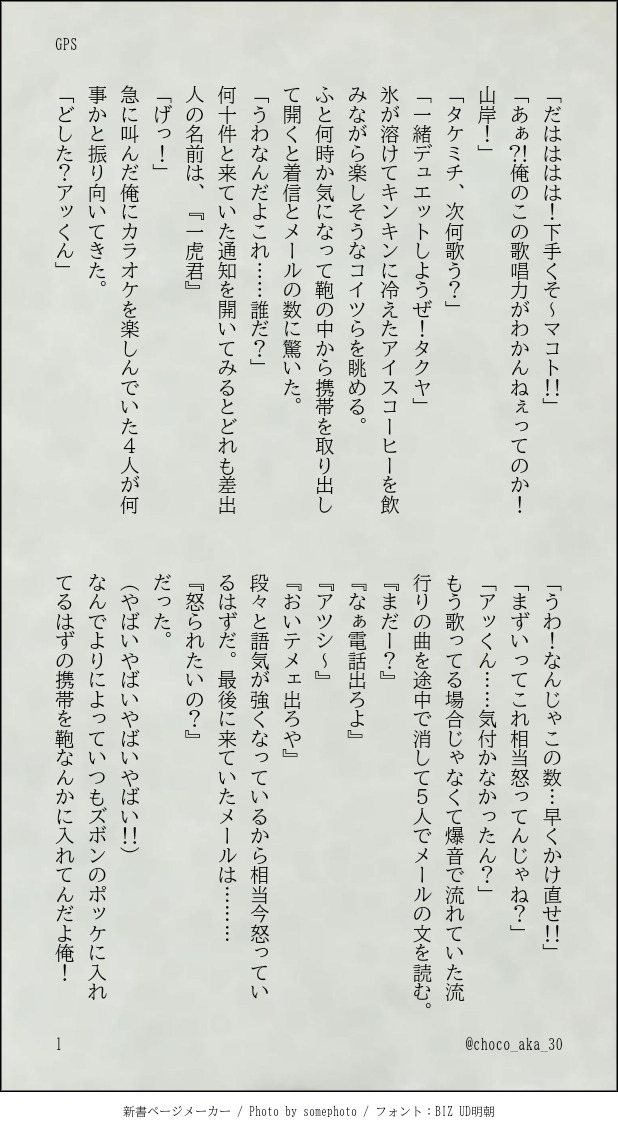 GPS
「だはははは！下手くそ～マコト!!」
「あぁ?!俺のこの歌唱力がわかんねぇってのか！
山岸！」
「タケミチ、次何歌う？」
「一緒デュエットしようぜ！タクヤ」
氷が溶けてキンキンに冷えたアイスコーヒーを飲
みながら楽しそうなコイツらを眺める。
ふと何時か気になって鞄の中から携帯を取り出し
て開くと着信とメールの数に驚いた。
「うわなんだよこれ……誰だ？」
何十件と来ていた通知を開いてみるとどれも差出
人の名前は、『一虎君』
「げっ！」
急に叫んだ俺にカラオケを楽しんでいた４人が何
事かと振り向いてきた。
「どした？アッくん」
「うわ！なんじゃこの数…早くかけ直せ!!」
「まずいってこれ相当怒ってんじゃね？」
「アッくん……気付かなかったん？」
もう歌ってる場合じゃなくて爆音で流れていた流
行りの曲を途中で消して５人でメールの文を読む。
『まだー？』
『なぁ電話出ろよ』
『アツシ～』
『おいテメェ出ろや』
段々と語気が強くなっているから相当今怒ってい
るはずだ。最後に来ていたメールは………
『怒られたいの？』
だった。
（やばいやばいやばいやばい!!）
なんでよりによっていつもズボンのポッケに入れ
てるはずの携帯を鞄なんかに入れてんだよ俺！
1
@choco_aka_30
新書ページメーカー / Photo by somephoto / フォント：BIZ UD明朝